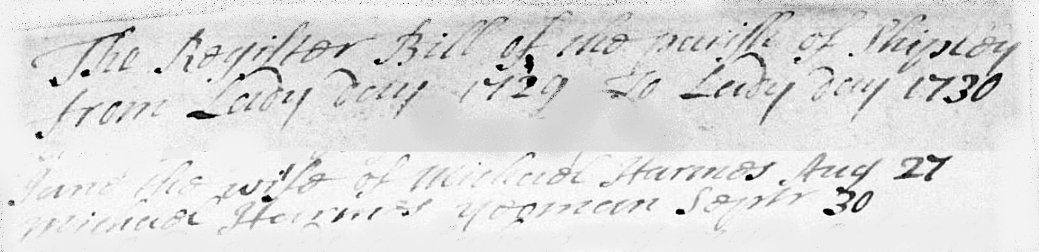 The Register Bill of the parish of Shipley
from Lady day 1729 To Lady day 1730
Jane the wife of Michael Harmes Aug 27
Michael Harmes yeoman Septr 30